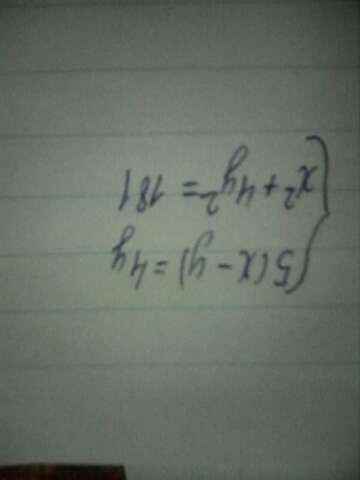 5(x - y) = 4y
x² + 4y² = 181